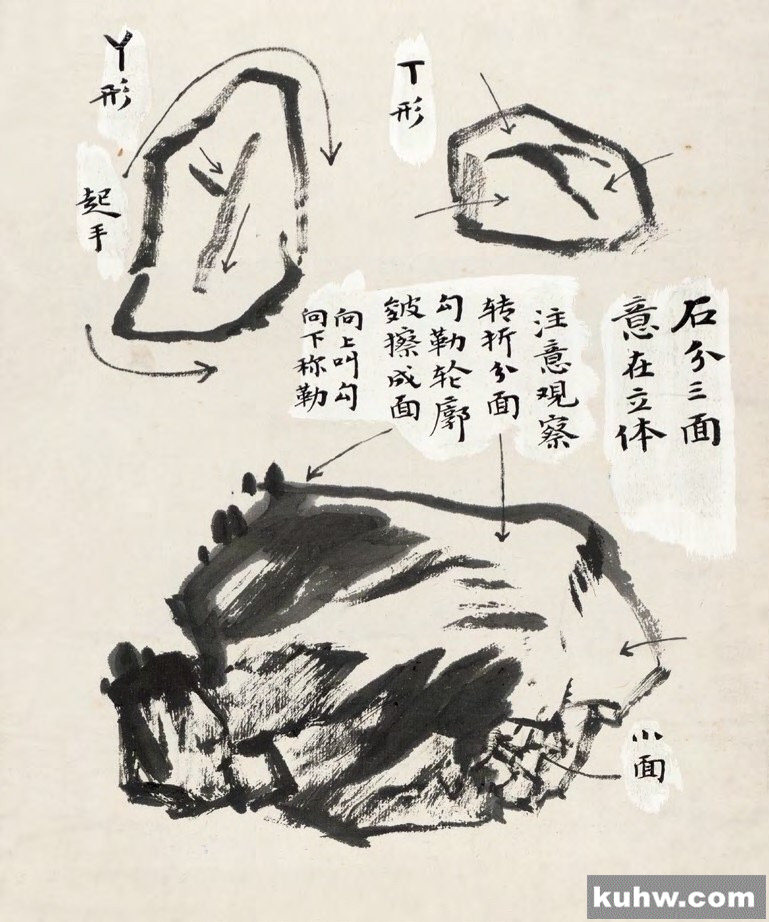 丫形
起手
丁形
石分三面
意在立体
注意观察
转折分面
勾勒轮廓
皴擦成面
向上叫勾
向下称勒
小面
kuhw.com